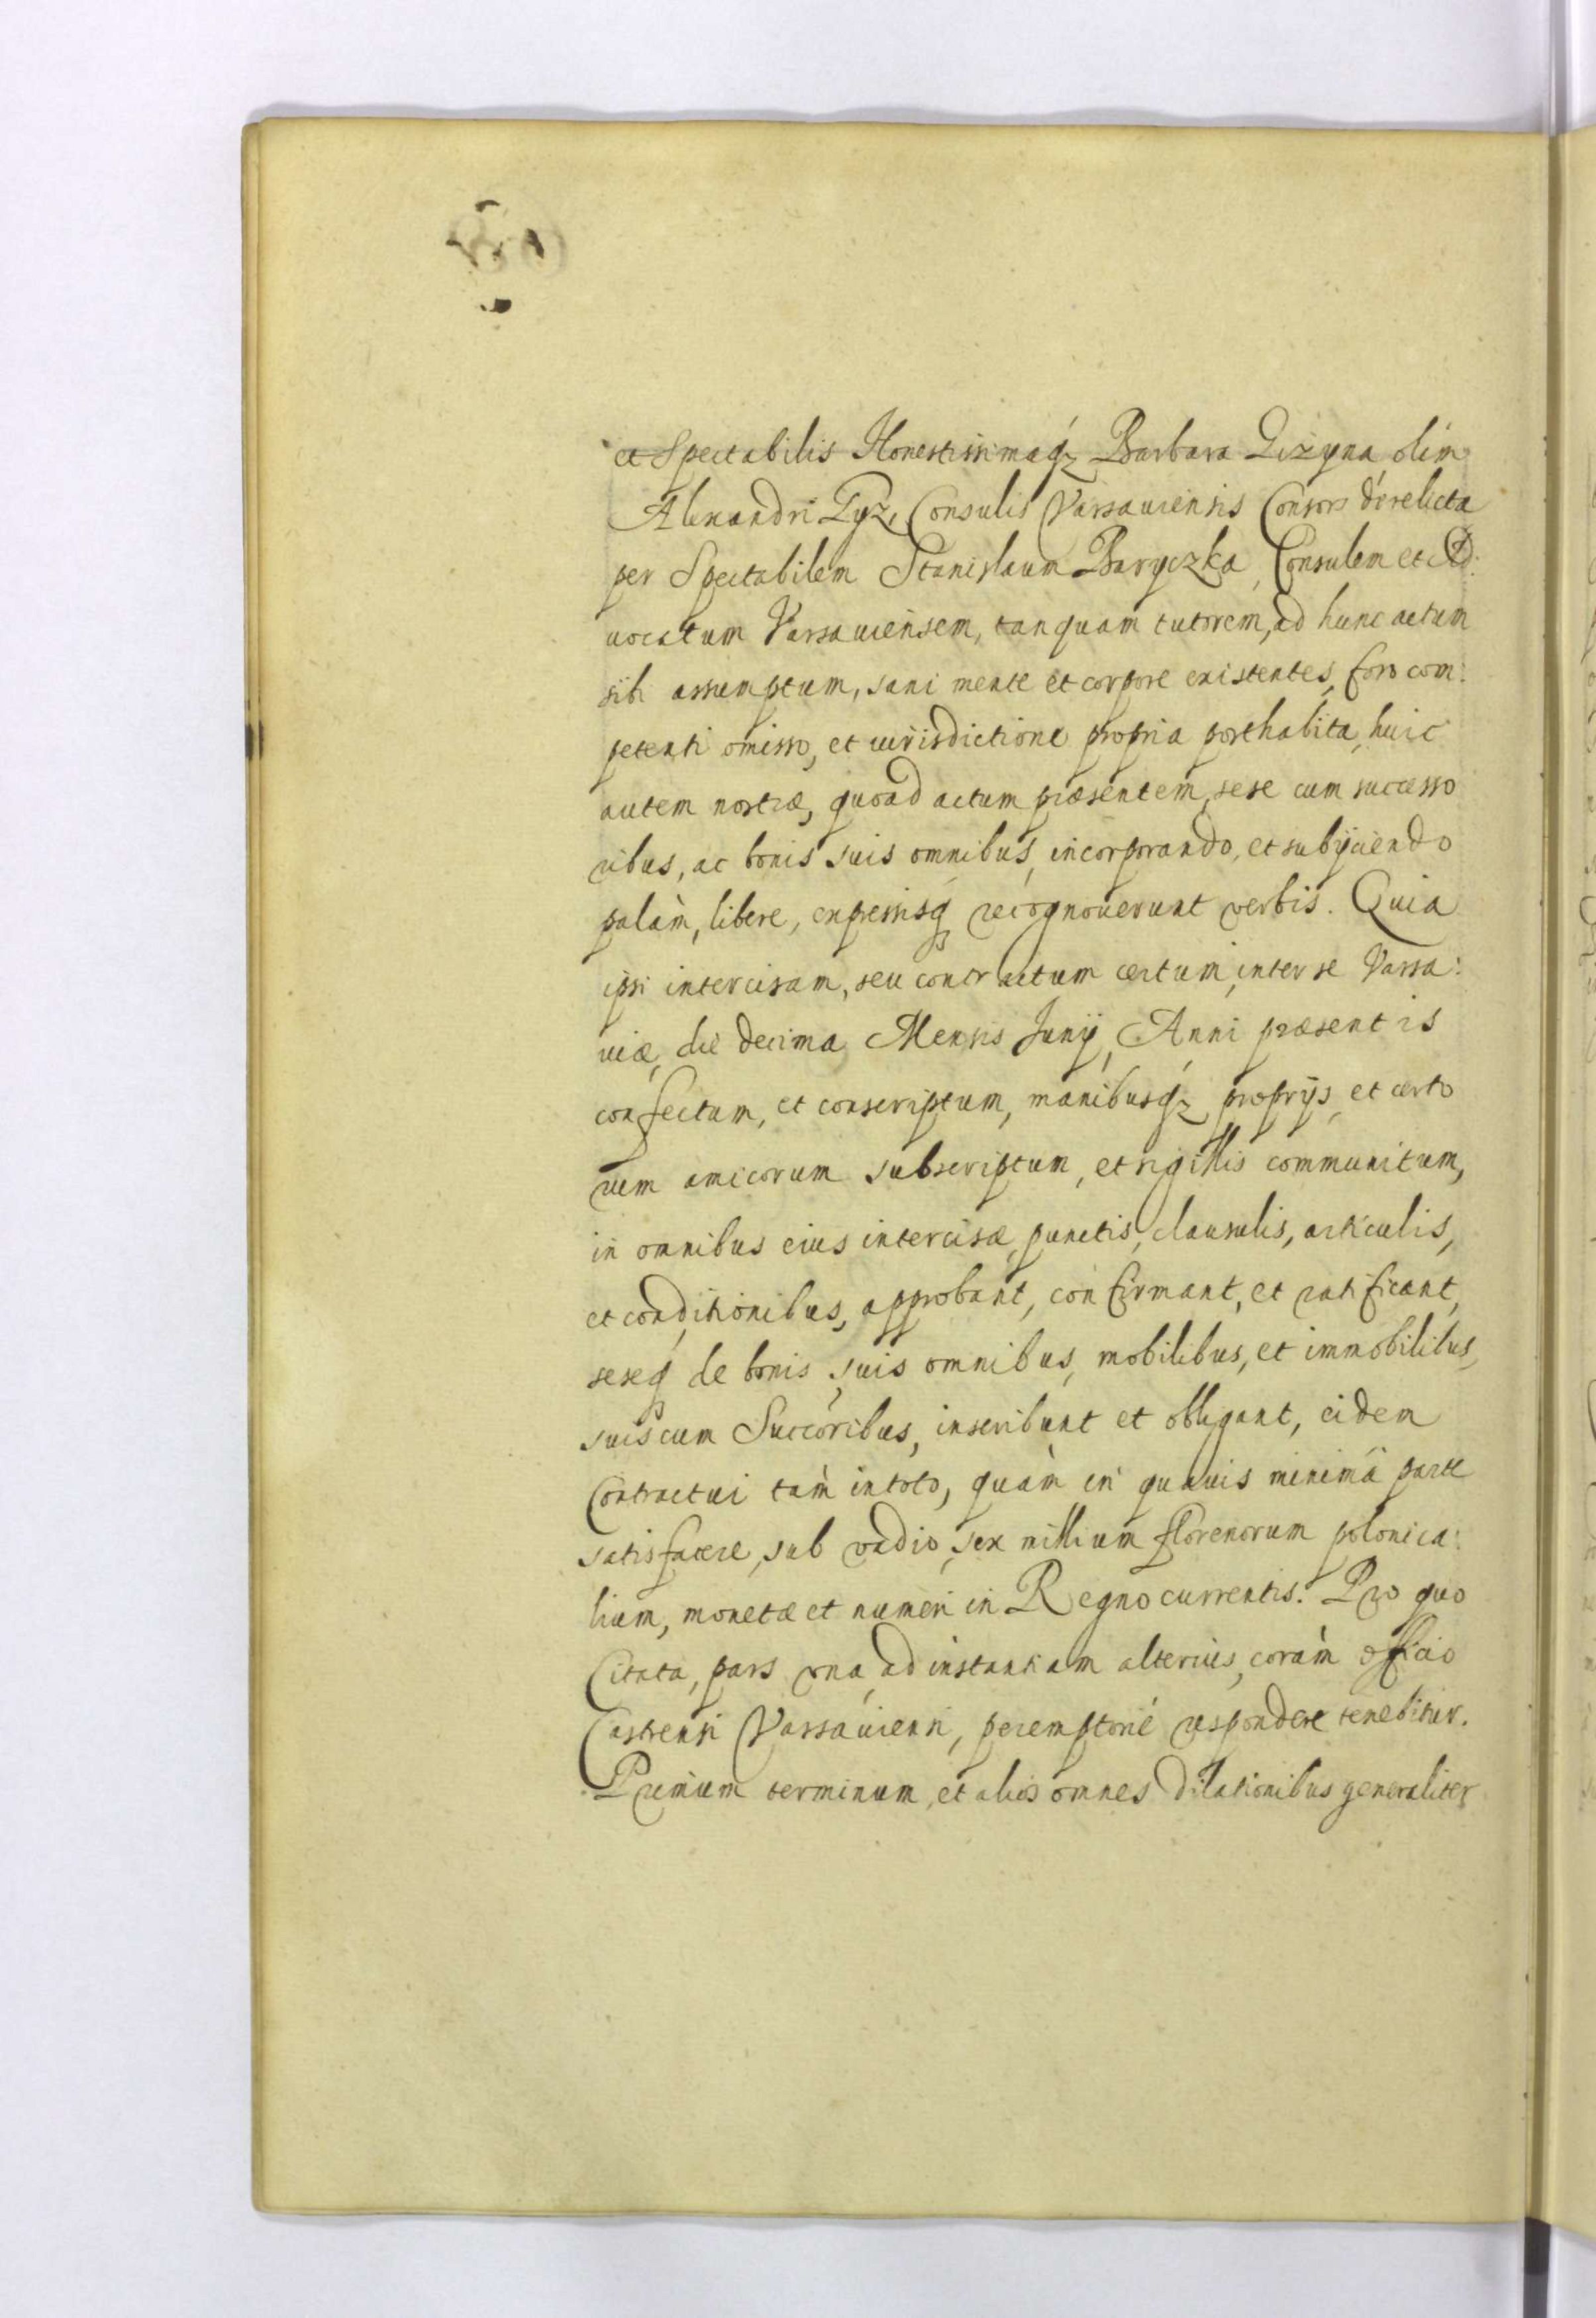 et Spectabilis Honestissimaq₃ Barbara Gizyna olim
Alexandri Gyz, Consulis Varsauiensis Consors derelicta
per Spectabilem Stanislaum Baryczka, Consulem et Ad:
uocatum Varsauiensem, tanquam tutorem, ad hunc actum
sibi assumptum, sani mente et corpore existentes, foro com:
petenti omisso, et iurisdictione propria posthabita, huic
autem nostræ, quoad actum præsentem, sese cum successo
ribus, ac bonis suis omnibus, incorporando, et subÿciendo
palàm, libere, expressisq₃ recognouerunt verbis. Quia
ipsi intercisam, seu contractum certum, inter se Varsa:
uiæ, die decima Mensis Junÿ, Anni præsentis
confectum, et conscriptum, manibusq₃ proprÿs, et certo
rum amicorum subscriptum, et sigillis communitum,
in omnibus eius intercisæ, punctis, clausulis, articulis,
et conditionibus, approbant, confirmant, et ratificant,
seseq₃ de bonis suis omnibus, mobilibus, et immobilibus,
suis cum Succoribus, inscribunt et obligant, eidem
Contractui tàm in toto, quàm in quauis minimâ parte
satisfacere, sub vadio, sex millium florenorum polonica:
lium, monetæ et numeri in Regno currentis. Pro quo
Citata, pars vna, ad instantiam alterius, coràm officio
Castrensi Varsauiensi, peremptoriè respondere tenebitur.
Primum terminum, et alios omnes dilationibus generaliter